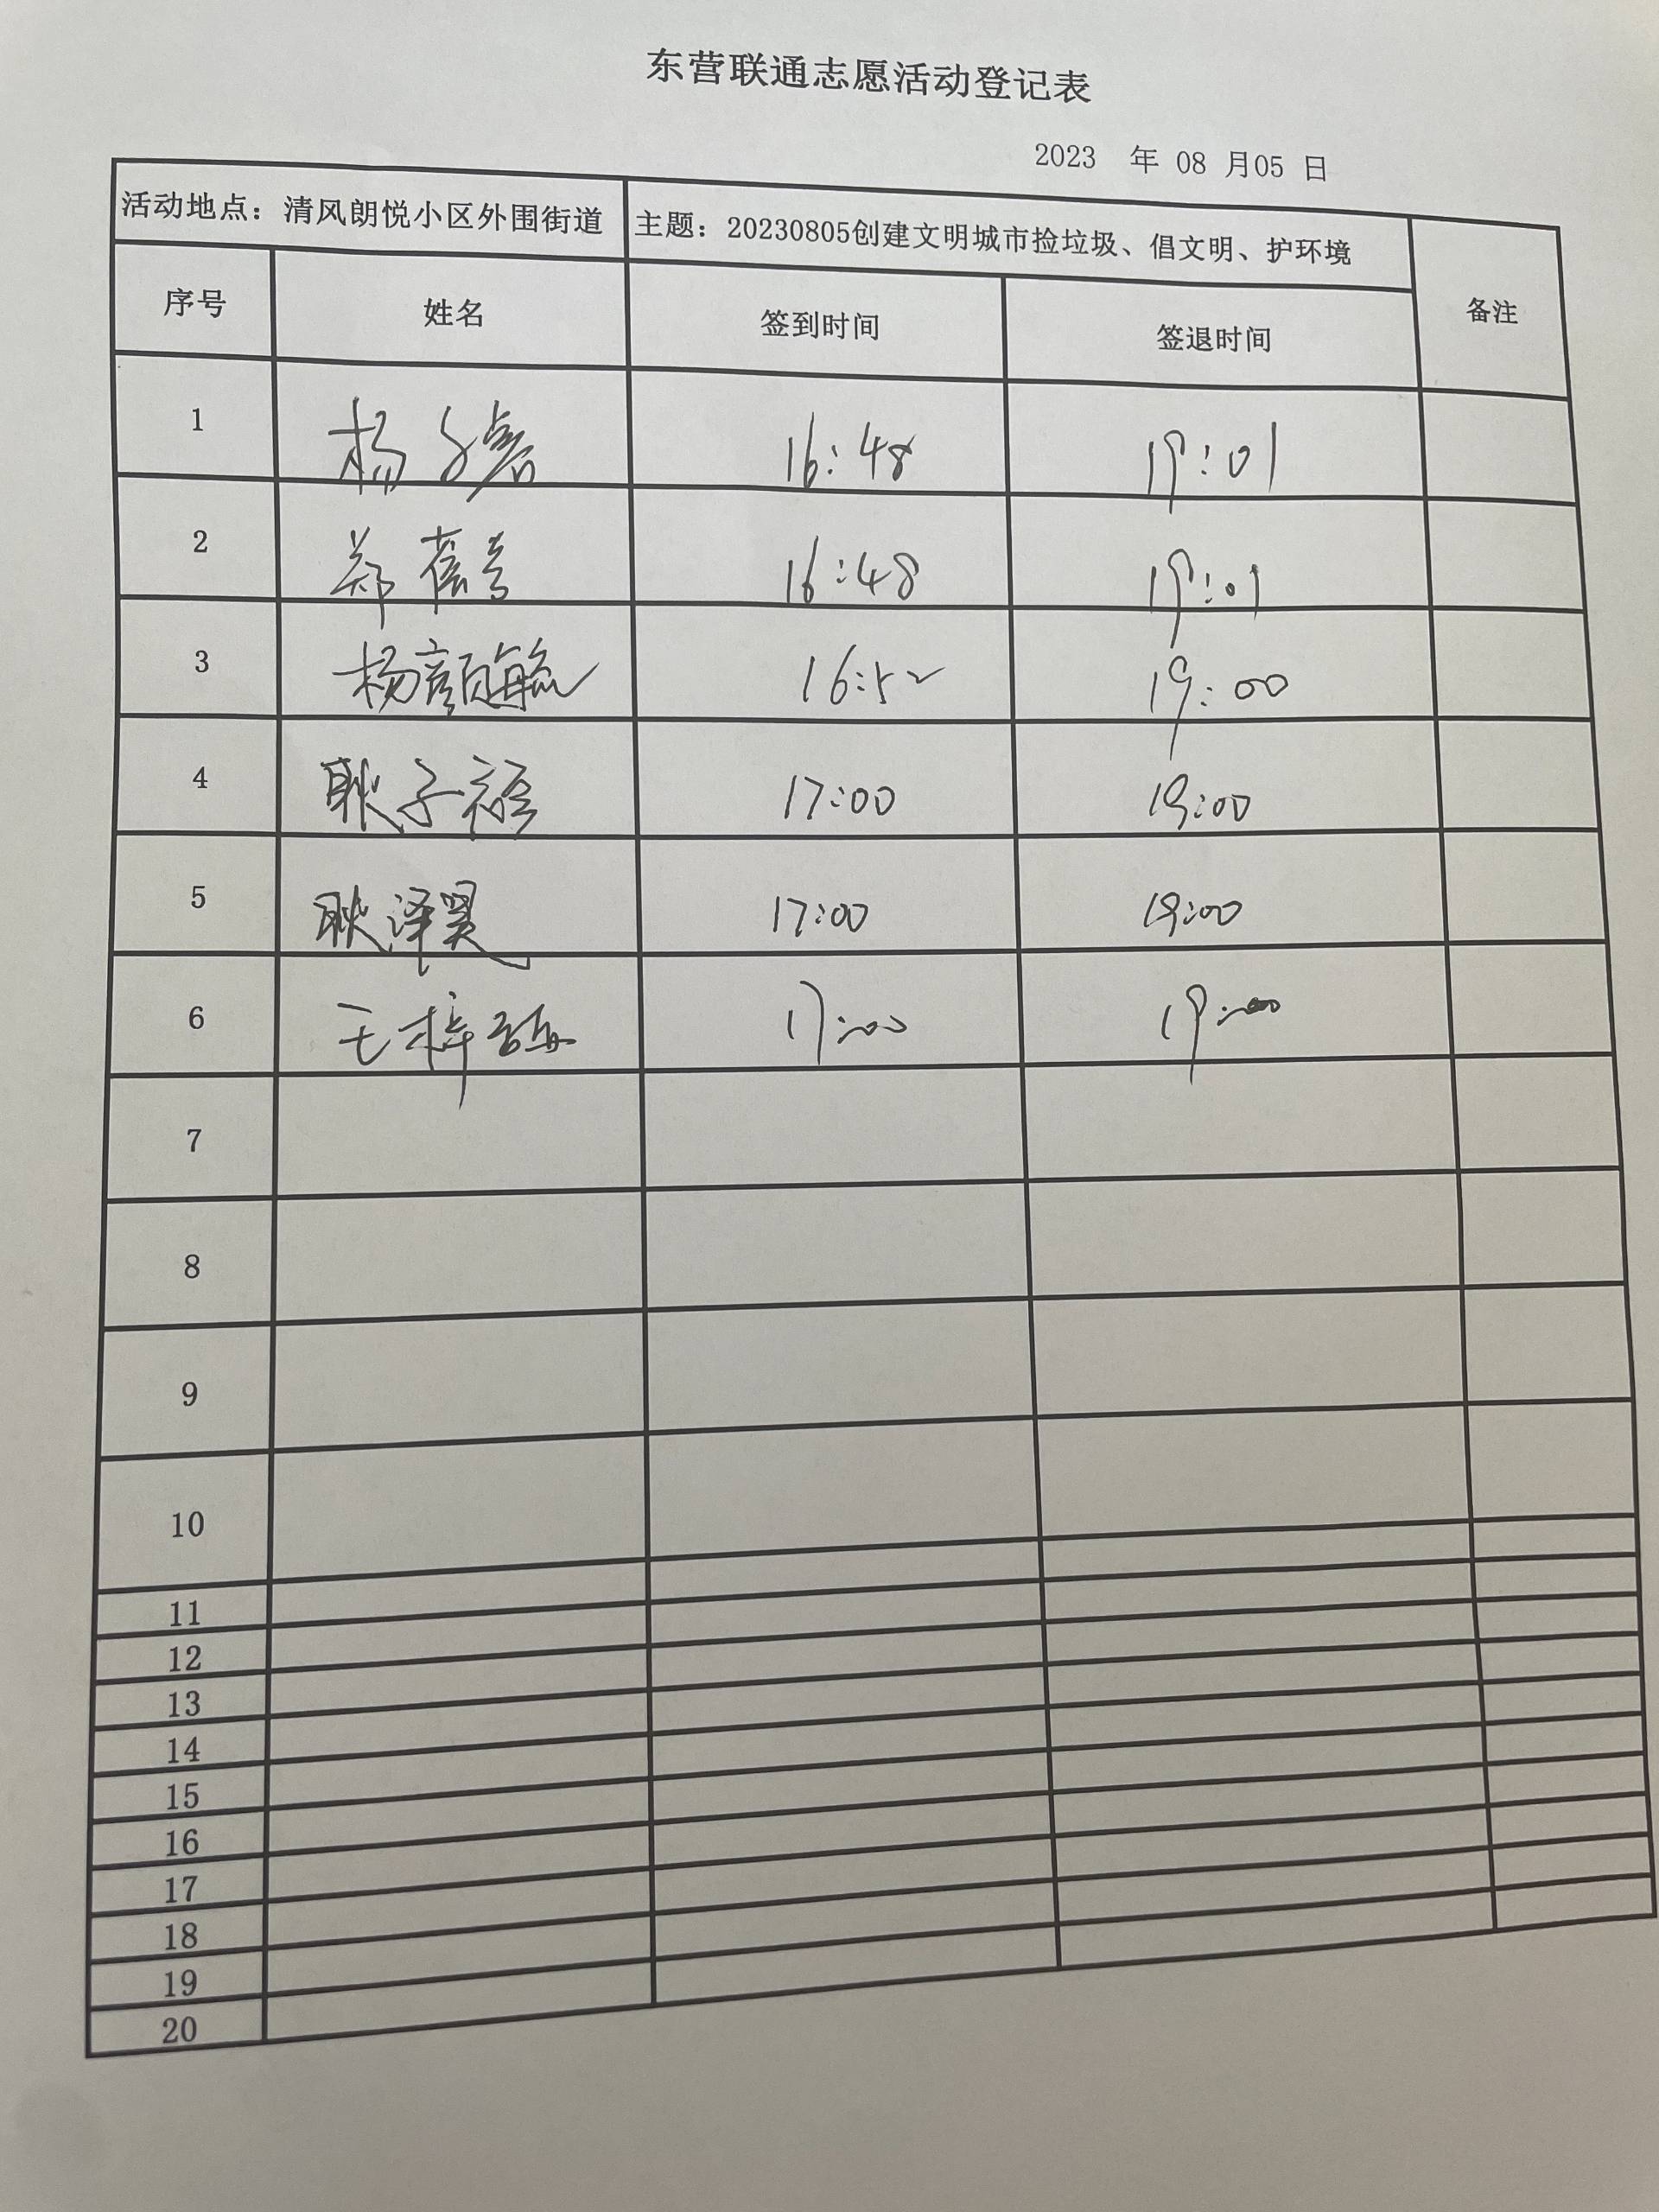 东营联通志愿活动登记表
2023 年 08 月05 日
活动地点：清风朗悦小区外围街道 主题：20230805创建文明城市捡垃圾、倡文明、护环境 备注
序号 姓名 签到时间 签退时间
1 杨子 16:48 19:01
2 郑 16:48 19:01
3 杨颜毓 16:52 19:00
4 耿子 17:00 19:00
5 耿泽昊 17:00 19:00
6 王梓 17:00 19:00
7
8
9
10
11
12
13
14
15
16
17
18
19
20